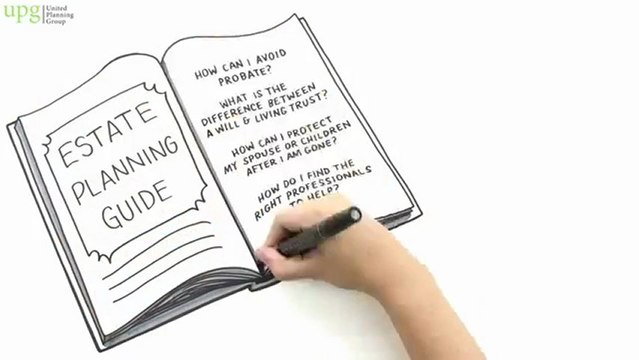 upg United
Planning
Group
ESTATE
PLANNING
GUIDE
HOW CAN I AVOID
PROBATE?
WHAT IS THE
DIFFERENCE BETWEEN
A WILL & LIVING TRUST?
HOW CAN I PROTECT
MY SPOUSE OR CHILDREN
AFTER I AM GONE?
HOW DO I FIND THE
RIGHT PROFESSIONALS
TO HELP?